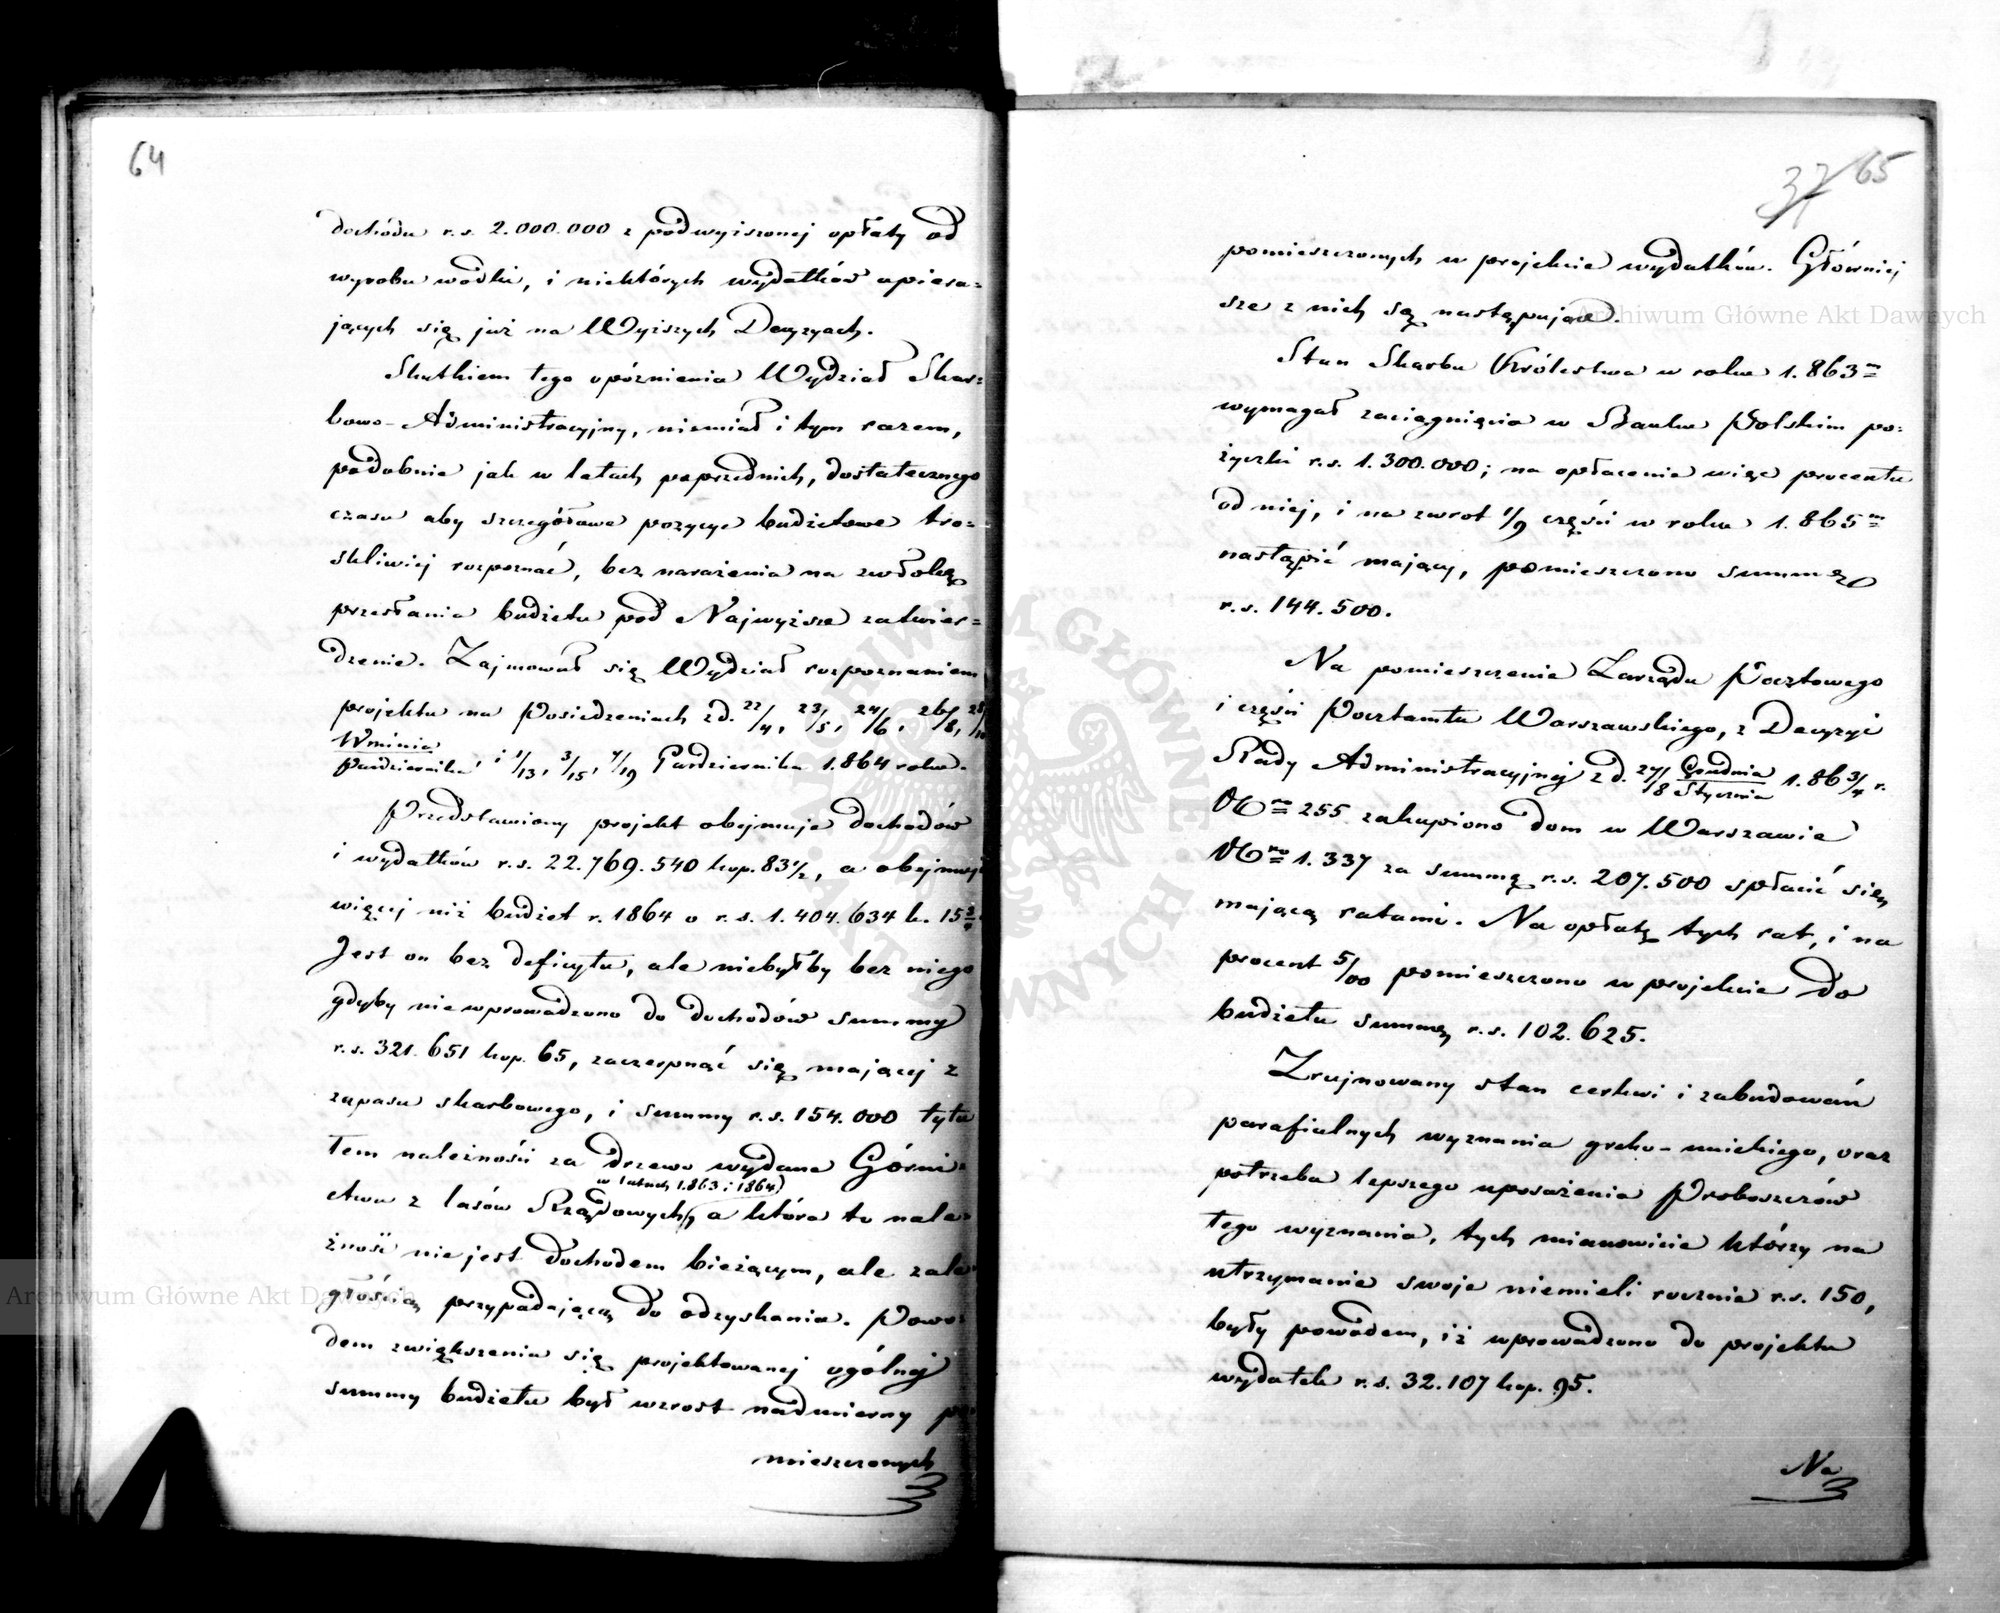 64
dochódu r.s. 2.000.000 z podwyższonej opłaty od
wyrobu wódki, i niektórych wydatków opiera=
jących się już na Wyższych Decyzyach.
Skutkiem tego opóźnienia Wydział Skar=
bowo-Administracyjny, niemiał i tym razem,
podobnie jak w latach poprzednich, dostatecznego
czasu aby szczegółowe pozycye budżetowe tro=
skliwiej rozpoznać, bez narażenia na zwłokę
przesłania budżetu pod Najwyższe zatwier=
dzenie. Zajmował się Wydział rozpoznaniem
projektu na Posiedzeniach z d. 22/4, 23/5, 24/6, 26/8, 28/10
Września
Października, i 1/13, 3/15, 7/19 Października 1.864 roku.
Przedstawiony projekt obejmuje dochodów
i wydatków r.s. 22.769.540 kop. 83 1/2, a obejmuje
więcej niż budżet r. 1864 o r.s. 1.404.634 k. 15 3/4
Jest on bez deficytu, ale niebyłby bez niego
gdyby niewprowadzono do dochodów summy
r.s. 321.651 kop. 65, zaczerpnąć się mającej z
zapasu skarbowego, i summy r.s. 154.000 tytu
łem należności za drzewo wydane Górni=
w latach 1.863 i 1864
ctwu z lasów Rządowych, a która to nale=
żność nie jest dochodem bieżącym, ale zale
głością przypadającą do odzyskania. Powo=
dem zwiększenia się projektowanej ogólnej
summy budżetu był wzrost nadmierny po
mieszczonych
37 65
pomieszczonych w projekcie wydatków. Główniej
sze z nich są następujące.
Stan Skarbu Królestwa w roku 1.863m
wymagał zaciągnięcia w Banku Polskim po=
życzki r.s. 1.300.000; na opłacenie więc procentu
od niej, i na zwrot 1/9 części w roku 1.865m
nastąpić mający, pomieszczono summę
r.s. 144.500.
Na pomieszczenie Zarządu Pocztowego
i części Pocztamtu Warszawskiego, z Decyzyi
Rady Administracyjnej z d. 27/8 Grudnia/Stycznia 1.863/4 r.
No 255 zakupiono dom w Warszawie
Nro 1.337 za summę r.s. 207.500 spłacić się
mającą ratami. Na opłatę tych rat, i na
procent 5/00 pomieszczono w projekcie do
budżetu summę r.s. 102.625.
Zrujnowany stan cerkwi i zabudowań
parafialnych wyznania greko-unickiego, oraz
potrzeba lepszego uposażenia Proboszczów
tego wyznania, tych mianowicie którzy na
utrzymanie swoje niemieli rocznie r.s. 150,
były powodem, iż wprowadzono do projektu
wydatek r.s. 32.107 kop. 95.
Na
Archiwum Główne Akt Dawnych
Archiwum Główne Akt Dawnych
ARCHIWUM GŁÓWNE AKT DAWNYCH